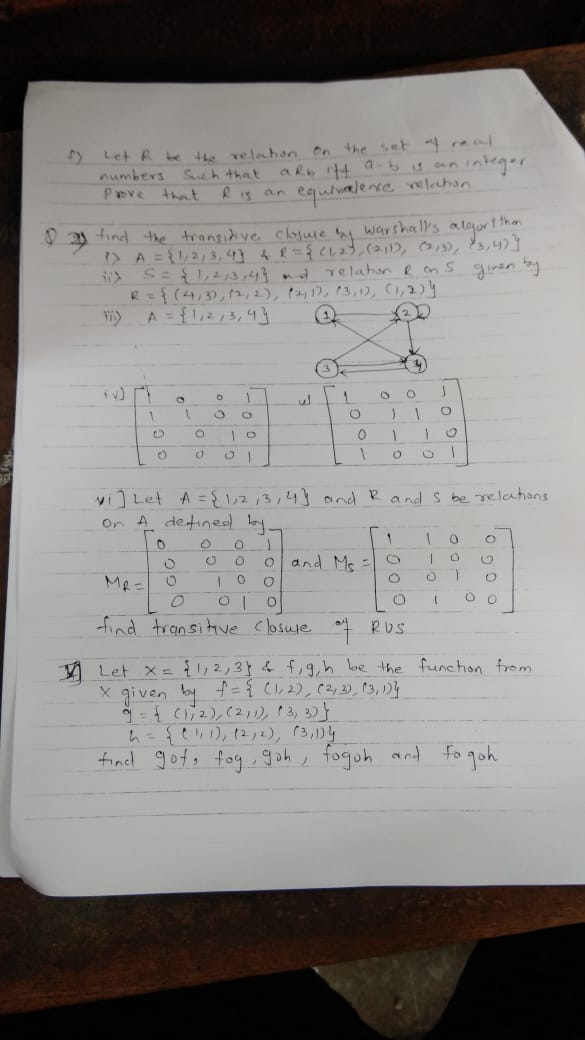 f) Let R be the relation on the set of real
numbers such that aRb iff a-b is an integer
Prove that R is an equivalence relation
Q 3) find the transitive closure by Warshall's algorithm
i) A = {1,2,3,4} & R = {(1,2),(2,1),(2,3),(3,4)}
ii) S = {1,2,3,4} and relation R on S given by
R = {(4,3),(2,2),(2,1),(3,1),(1,2)}
iii) A = {1,2,3,4}
1 2
3 4
iv] v]
1 0 0 1 1 0 0 1
1 1 0 0 0 1 1 0
0 0 1 0 0 1 1 0
0 0 0 1 1 0 0 1
vi] Let A = {1,2,3,4} and R and S be relations
on A defined by
0 0 0 1 1 1 0 0
0 0 0 0 and Ms = 0 1 0 0
MR = 0 1 0 0 0 0 1 0
0 0 1 0 0 1 0 0
find transitive closure of RUS
V] Let X = {1,2,3} & f,g,h be the function from
X given by f = {(1,2),(2,3),(3,1)}
g = {(1,2),(2,1),(3,3)}
h = {(1,1),(2,2),(3,1)}
find gof, fog, goh, fogoh and fogoh